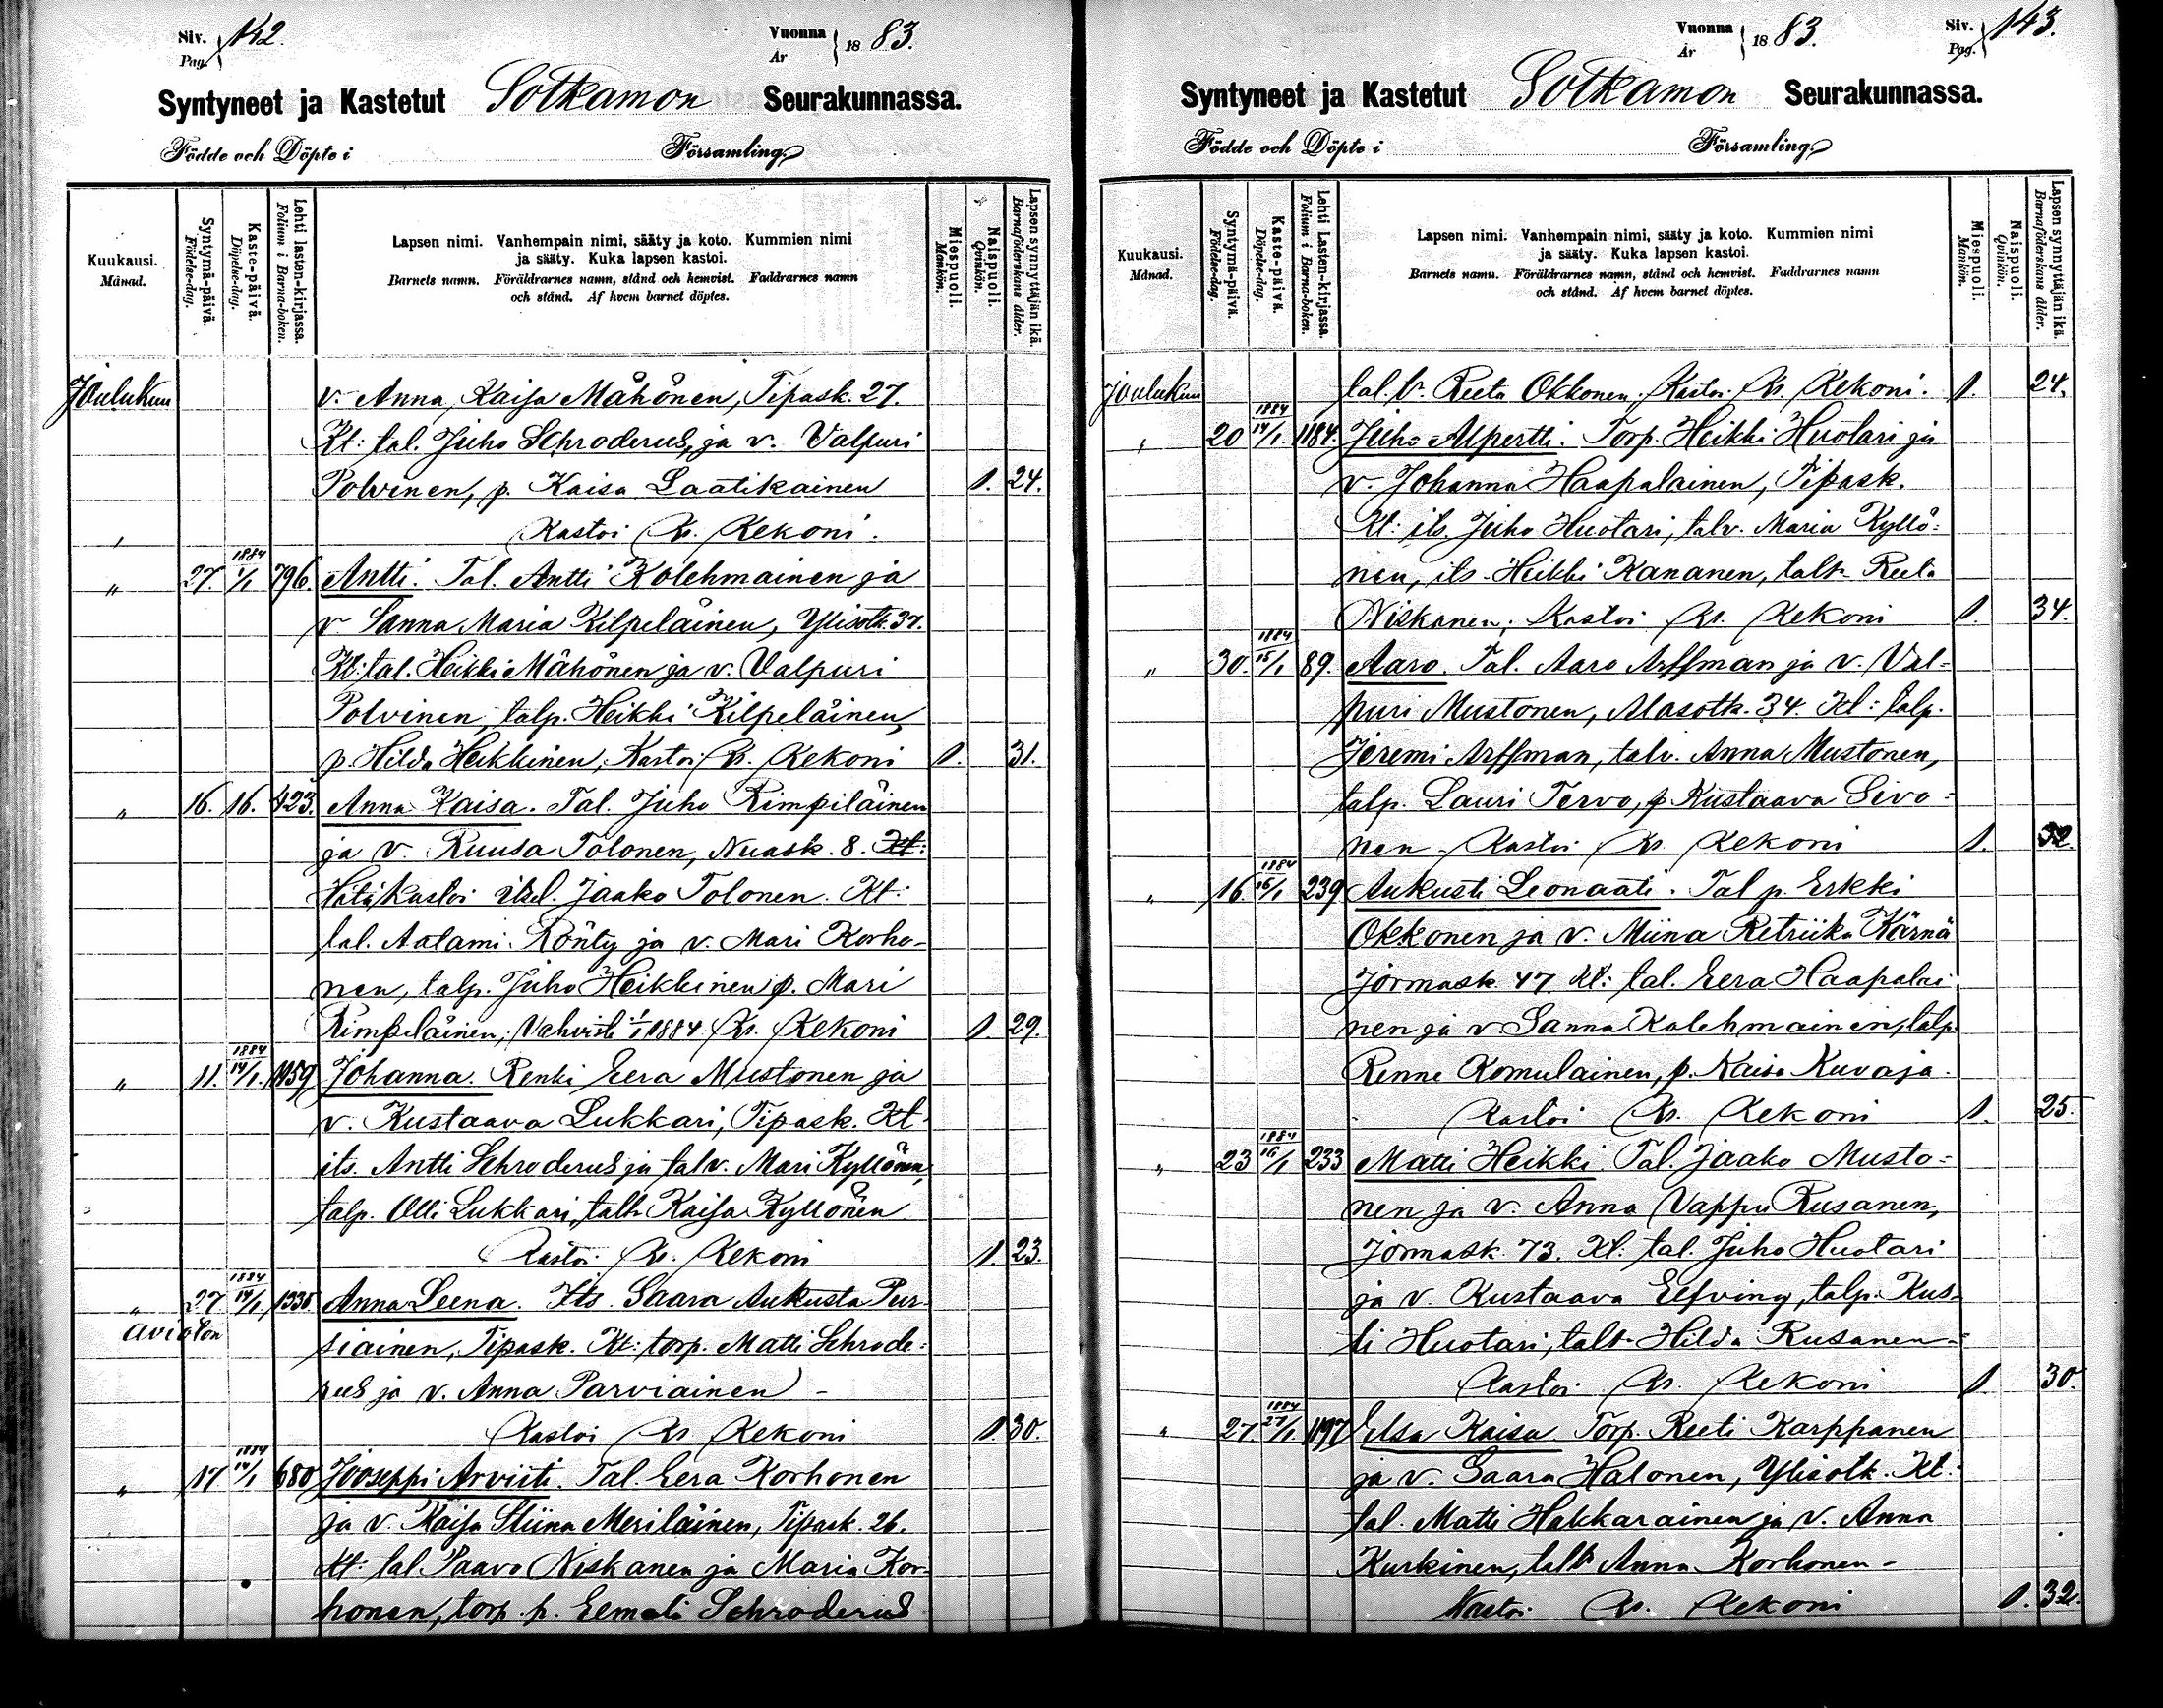 Siv. Pag. 142.
Vuonna År 1883.
Syntyneet ja Kastetut Sotkamon Seurakunnassa.
Födde och Döpte i Församling.
Kuukausi. Månad.
Syntymä-päivä. Födelse-dag.
Kaste-päivä. Döpelse-dag.
Lehti lasten-kirjassa. Folium i Barna-boken.
Lapsen nimi. Vanhempain nimi, sääty ja koto. Kummien nimi
ja sääty. Kuka lapsen kastoi.
Barnets namn. Föräldrarnes namn, stånd och hemvist. Faddrarnes namn
och stånd. Af hvem barnet döptes.
Miespuoli. Mankön.
Naispuoli. Qvinkön.
Lapsen synnyttäjän ikä. Barnaföderskans ålder.
Joulukuu v. Anna Kaisa Mähönen, Tipask. 27.
Kt: tal. Juho Schroderus, ja v. Valpuri
Polvinen, p. Kaisa Laatikainen 1. 24.
Kastoi Kr. Kekoni.
„ 27. 1884 1/1 796. Antti. Tal. Antti Kolehmainen ja
v. Sanna Maria Kilpeläinen, Ylisotk. 37.
Kt: tal. Heikki Mähönen ja v. Valpuri
Polvinen, talp. Heikki Kilpeläinen,
p. Hilda Heikkinen, Kastoi Kr. Kekoni 1. 31.
„ 16. 16. 423. Anna Kaisa. Tal. Juho Rimpiläinen
ja v. Ruusa Tolonen, Nuask. 8. Kt:
Hätäkastoi itsel. Jaako Tolonen. Kt:
tal. Aatami Rönty ja v. Mari Korho-
nen, talp. Juho Heikkinen p. Mari
Rimpeläinen; Vahvisti 1/1 1884 Kr. Kekoni 1. 29.
„ 11. 1884 14/1. 1159 Johanna. Renki Eera Mustonen ja
v. Kustaava Lukkari, Tipask. Kt.
its. Antti Schroderus ja talv. Mari Kyllönen,
talp. Olli Lukkari, talt. Kaisa Kyllönen
Kastoi Kr. Kekoni 1. 23.
„ 27 1884 14/1 1335 Anna Leena. Its. Saara Aukusta Pur-
Avioton siainen, Tipask. Kt: torp. Matti Schrode-
rus ja v. Anna Parviainen -
Kastoi Kr Kekoni 1. 30.
„ 17 1884 14/1 680 Jooseppi Arviiti. Tal. Eera Korhonen
ja v. Kaisa Stiina Meriläinen, Tipask. 26.
Kt: tal. Paavo Niskanen ja Maria Kor-
honen, torp. p. Eemeli Schroderus
Vuonna År 1883.
Siv. Pag. 143.
Syntyneet ja Kastetut Sotkamon Seurakunnassa.
Födde och Döpte i Församling.
Kuukausi. Månad.
Syntymä-päivä. Födelse-dag.
Kaste-päivä. Döpelse-dag.
Lehti Lasten-kirjassa. Folium i Barna-boken.
Lapsen nimi. Vanhempain nimi, sääty ja koto. Kummien nimi
ja sääty. Kuka lapsen kastoi.
Barnets namn. Föräldrarnes namn, stånd och hemvist. Faddrarnes namn
och stånd. Af hvem barnet döptes.
Miespuoli. Mankön.
Naispuoli. Qvinkön.
Lapsen synnyttäjän ikä. Barnaföderskans ålder.
Joulukuu tal. t. Reeta Okkonen. Kastoi Kr. Kekoni. 1. 24.
„ 20 1884 14/1. 1184. Juho Alpertti. Torp. Heikki Huotari ja
v. Johanna Haapalainen, Tipask.
Kt: its. Juho Huotari, talv. Maria Kyllö-
nen, its. Heikki Kananen, talt. Reeta
Niskanen; Kastoi Kr. Kekoni 1. 34.
„ 30. 1884 15/1 89. Aaro. Tal. Aaro Arffman ja v. Val-
puri Mustonen, Alasotk. 34. Kt: talp.
Jeremi Arffman, talv. Anna Mustonen,
talp. Lauri Tervo, p. Kustaava Sivo-
nen - Kastoi Kr. Kekoni 1. 32.
„ 16. 1884 16/1 239 Aukusti Leonaati. Tal p. Erkki
Okkonen ja v. Miina Retriika Kärnä
Jormask. 47 Kt: tal. Eera Haapalai
nen ja v Sanna Kolehmainen, talp.
Renne Komulainen, p. Kaisa Kuvaja.
Kastoi Kr. Kekoni 1. 25.
„ 23 1884 16/1 233 Matti Heikki. Tal. Jaako Musto-
nen ja v. Anna Vappu Rusanen,
Jormask. 73. Kt: tal. Juho Huotari
ja v. Kustaava Elfving, talp. Kus-
ti Huotari, talt. Hilda Rusanen-
Kastoi Kr. Kekoni 1 30.
„ 27. 1884 27/1. 1197 Elsa Kaisa Torp. Reeti Karppanen
ja v. Saara Halonen, Ylisotk. Kt:
tal. Matti Hakkarainen ja v. Anna
Kurkinen, talt. Anna Korhonen -
Kastoi Kr. Kekoni 1. 32.